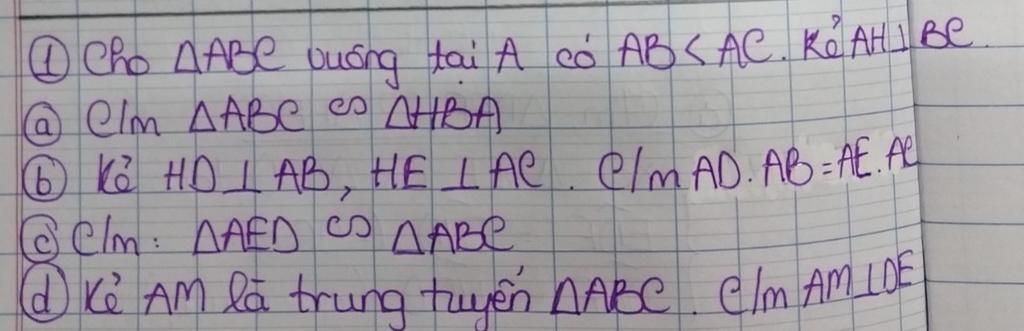 ① Cho ΔABC vuông tại A có AB < AC. Kẻ AH ⊥ BC.
ⓐ C/m ΔABC ∽ ΔHBA
ⓑ Kẻ HD ⊥ AB, HE ⊥ AC. C/m AD.AB = AE.AC
ⓒ C/m: ΔAED ∽ ΔABC
ⓓ Kẻ AM là trung tuyến ΔABC. C/m AM ⊥ DE